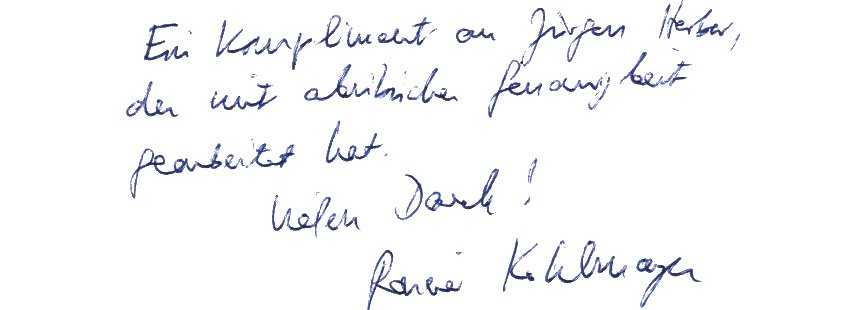 Ein Kompliment an Jürgen Herber,
der mit akribischer Genauigkeit
gearbeitet hat.
Vielen Dank!
Rainer Kohlmayer